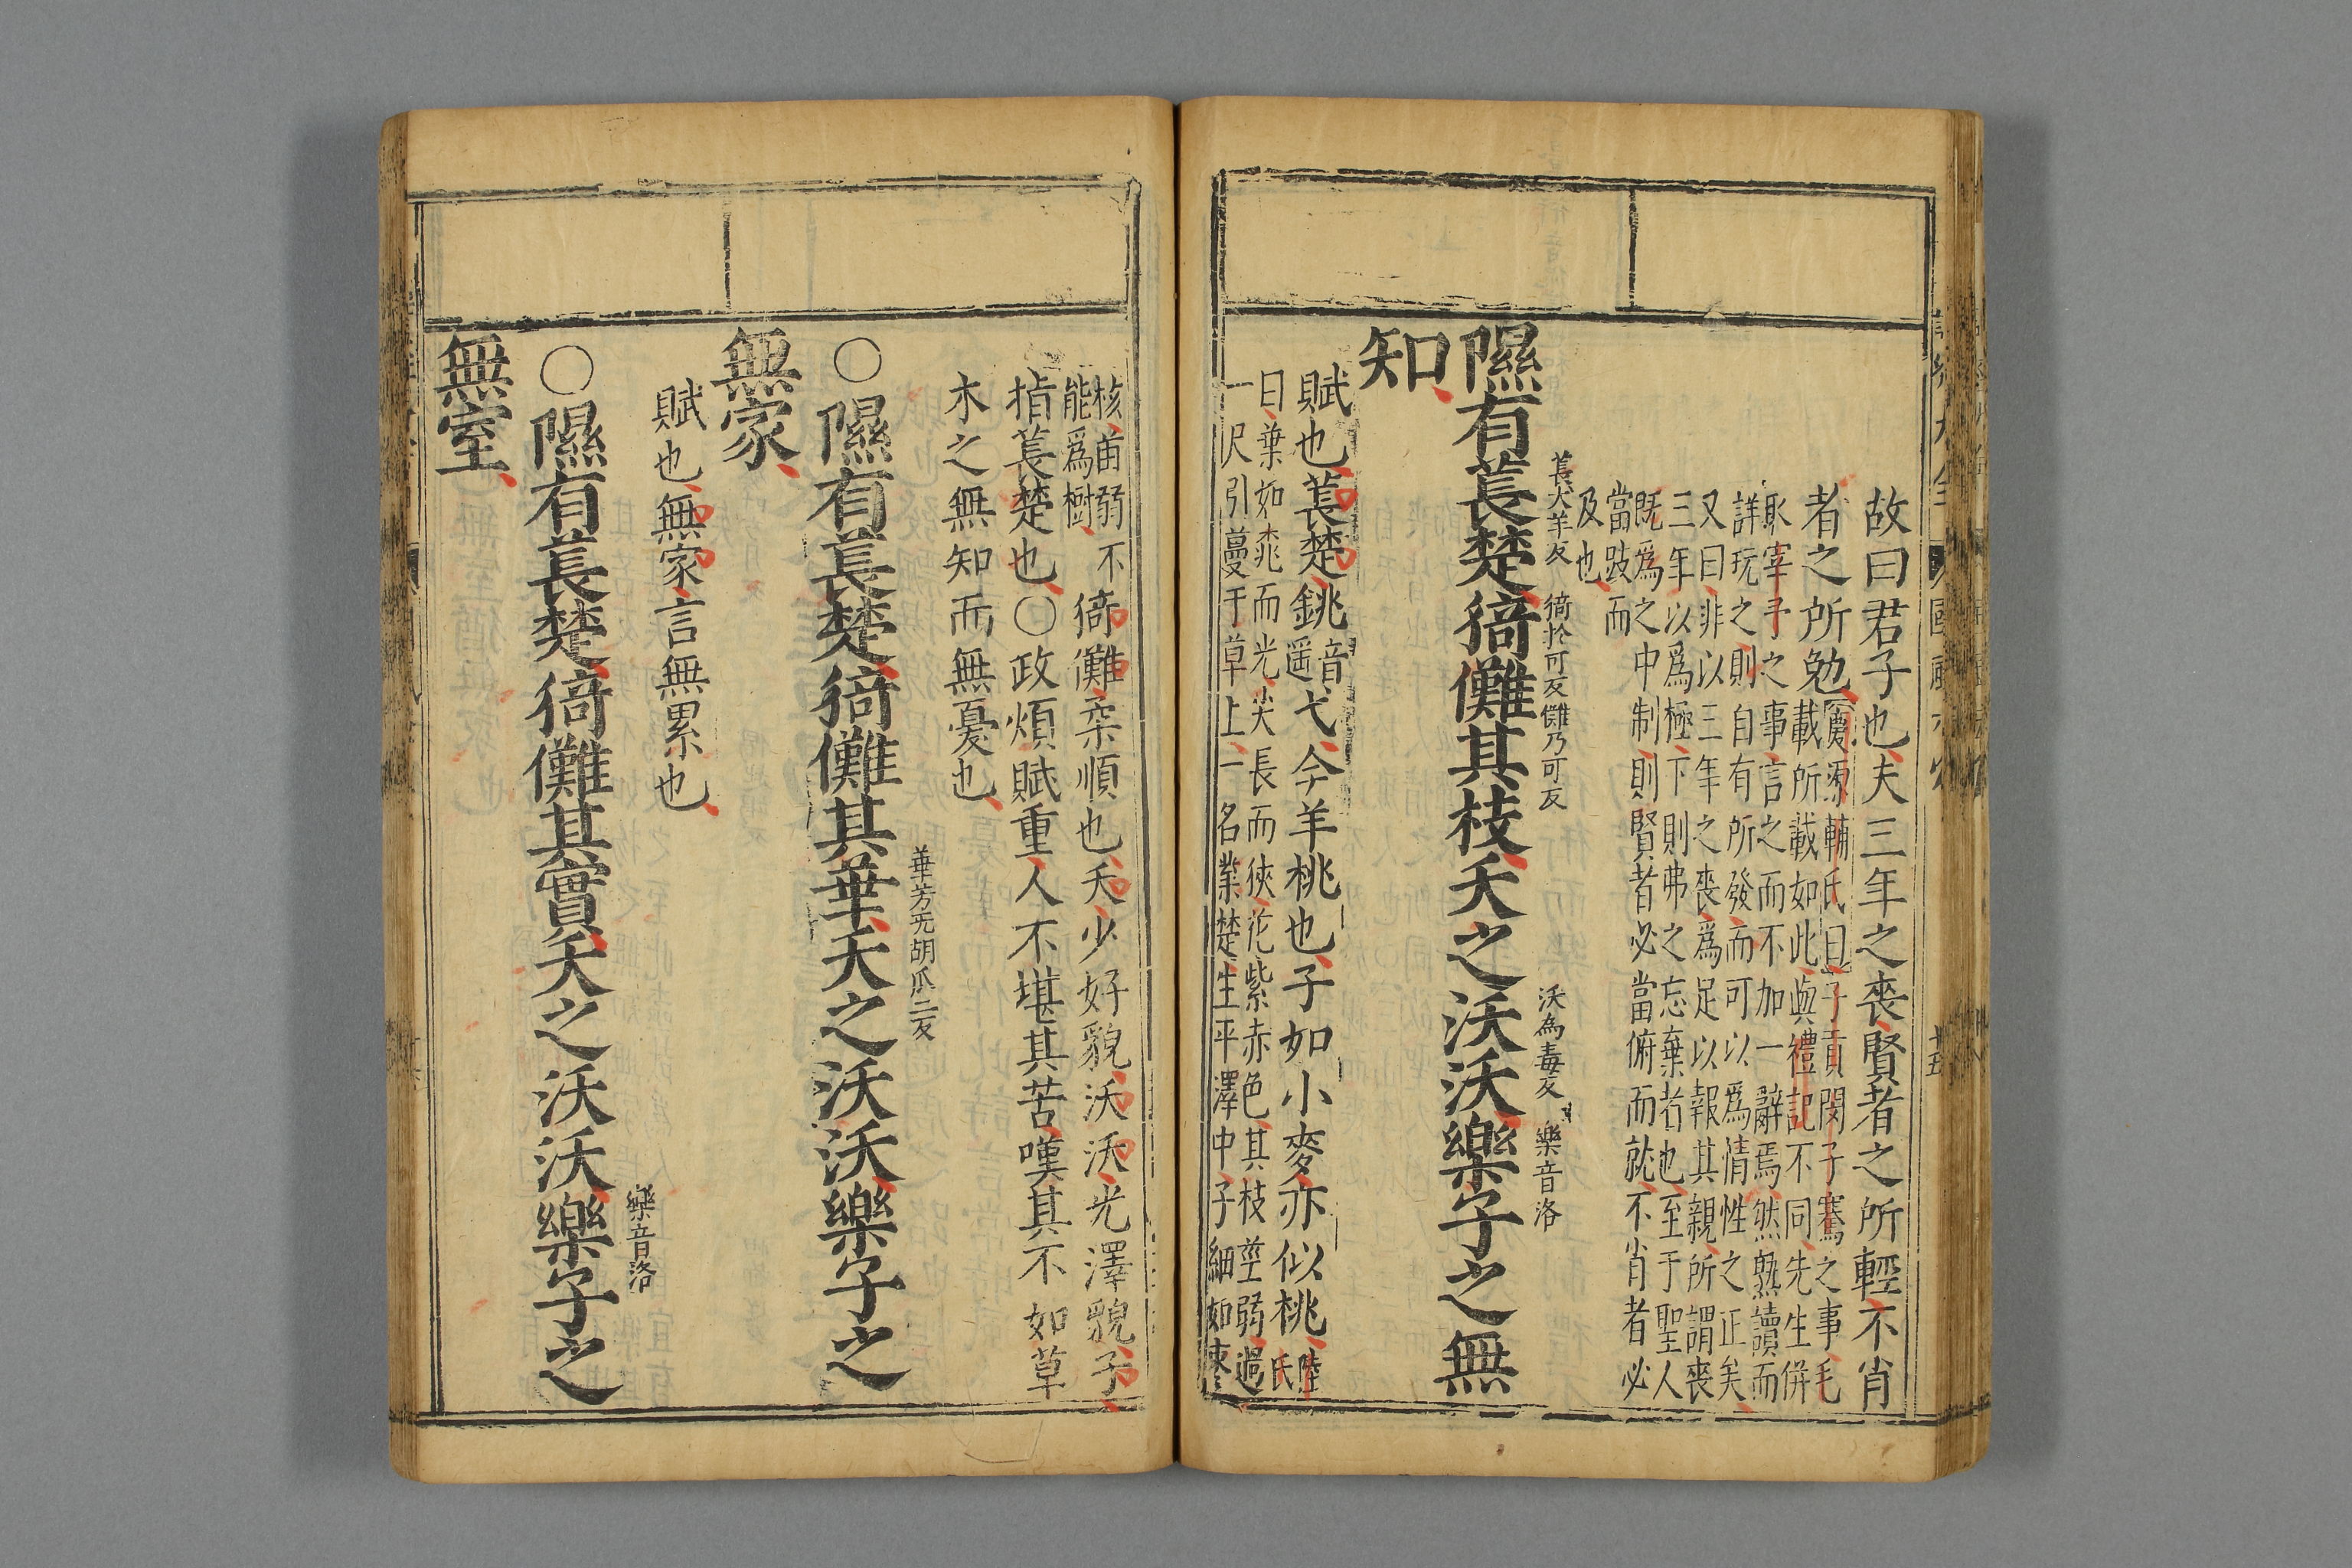 故曰君子也夫三年之喪賢者之所輕不肖
者之所勉
慶源輔氏曰子貢閔子騫之事毛
載所載如此與禮記不同先生併
取宰予之事言之而不加一辭焉然熟讀而
詳玩之則自有所發而可以爲情性之正矣
又曰非以三年之喪爲足以報其親所謂喪
三年以爲極下則弗之忘棄者也至于聖人
既爲之中制則賢者必當俯而就不肖者必
當跂而
及也
萇丈羊反 猗於可反儺乃可反 沃烏毒反 樂音洛
隰有萇楚猗儺其枝夭之沃沃樂子之無
知
賦也萇楚銚
音
遥
弋今羊桃也子如小麥亦似桃
陸
氏
曰葉如桃而光尖長而狹花紫赤色其枝莖弱過
一尺引蔓于草上一名業楚生平澤中子細如棗
核苗弱不
能爲樹
猗儺柔順也夭少好貌沃沃光澤貌子
指萇楚也○政煩賦重人不堪其苦嘆其不如草
木之無知而無憂也
華芳无胡瓜二反
○隰有萇楚猗儺其華夭之沃沃樂子之
無家
賦也無家言無累也
樂音洛
○隰有萇楚猗儺其實夭之沃沃樂子之
無室